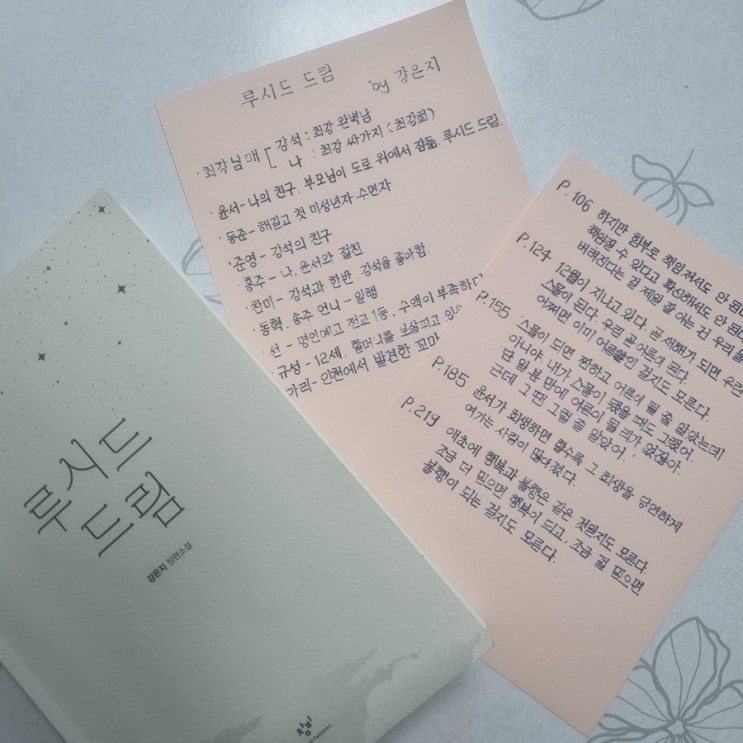 루시드 드림
by 강은지
· 최강남매 [ 강석 : 최강 완벽남
나 : 최강 싸가지 (최강희)
· 윤서 - 나의 친구. 부모님이 도로 위에서 잠듦. 루시드 드림.
· 동준 - 해길고 첫 미성년자 수면자
· 준영 - 강석의 친구
· 홍주 - 나, 윤서와 절친
· 찬미 - 강석과 한반. 강석을 좋아함.
· 동혁, 송주 언니 - 일행
· 선 - 명인예고 전교 1등. 수액이 부족하다
· 규성 - 12세. 할머니를 보살피고
가리 - 인천에서 발견한 꼬마
P. 106 하지만 함부로 책임져서도 안 된다
책임질 수 있다고 확신해서도 안 된다
버려진다는 걸 제일 잘 아는 건 우리
P. 124 12월이 지나고 있다. 곧 새해가 되면 우린
스물이 된다. 우린 곧 어른이 된다.
어쩌면 이미 어른인 걸지도 모른다.
P. 155 스물이 되면 짠하고 어른이 될 줄 알았는데!
아니야. 내가 스물이 됐을 때도 그랬어.
단 일 분 만에 어른이 될 리가 없잖아.
근데 그땐 그럴 줄 알았어.
P. 185 윤서가 희생하면 할수록 그 희생을 당연하게
여기는 사람이 많아졌다.
P. 219 애초에 행복과 불행은 같은 것인지도 모른다.
조금 더 믿으면 행복이 되고, 조금 덜 믿으면
불행이 되는 걸지도 모른다.
루시드
드림
강은지 장편소설
창비